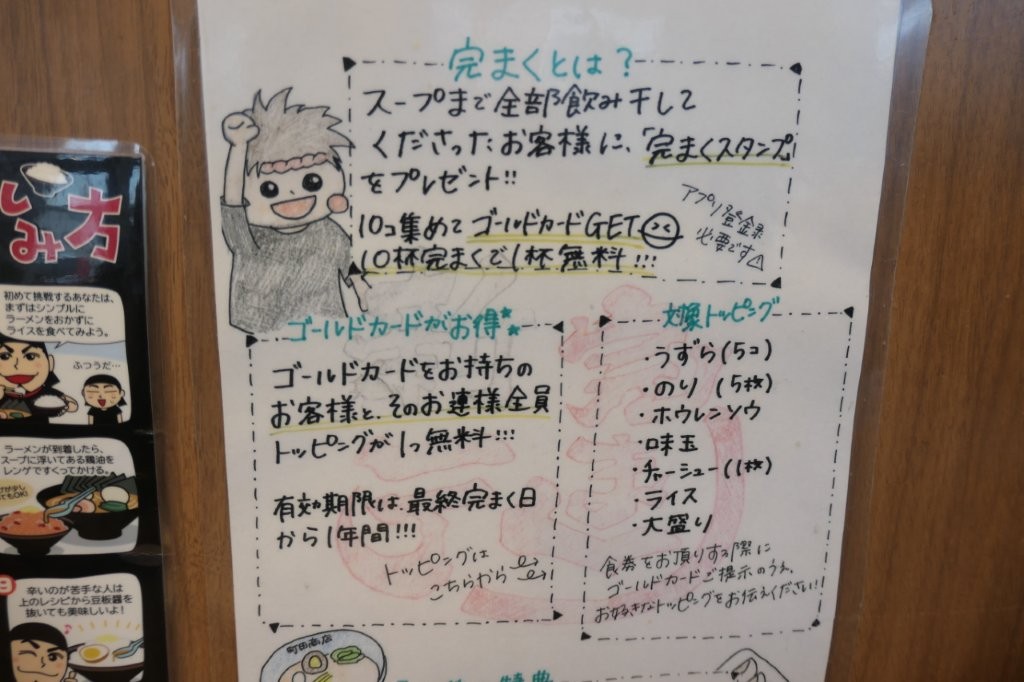 完まくとは？
スープまで全部飲み干して
くださったお客様に、「完まくスタンプ
をプレゼント!!
10コ集めてゴールドカードGET
10杯完まくで1杯無料!!!
アプリ登録
必要です
ゴールドカードがお得
ゴールドカードをお持ちの
お客様と、そのお連様全員
トッピングが1つ無料!!!
有効期限は、最終完まく日
から1年間!!!
トッピングは
こちらから
対象トッピング
・うずら(5コ)
・のり (5枚)
・ホウレンソウ
・味玉
・チャーシュー(1枚)
・ライス
・大盛り
食券をお頂りする際に
ゴールドカードご提示のうえ、
お好きなトッピングをお伝えください!!
町田商店
特典
方
み
初めて挑戦するあなたは、
まずはシンプルに
ラーメンをおかずに
ライスを食べてみよう。
ふつうだ…
ラーメンが到着したら、
スープに浮いてある鶏油を
レンゲですくってかける。
でもOK!
辛いのが苦手な人は
上のレシピから豆板醤を
抜いても美味しいよ!